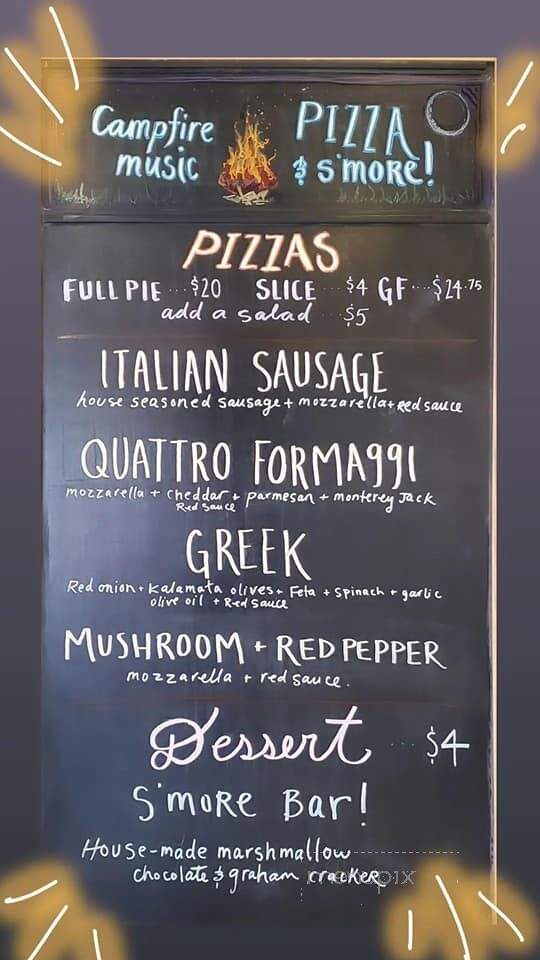 Campfire music
PIZZA & S'MORE!
PIZZAS
FULL PIE ... $20 SLICE ... $4 GF ... $24.75
add a salad $5
ITALIAN SAUSAGE
house seasoned sausage + mozzarella + red sauce
QUATTRO FORMAGGI
mozzarella + cheddar + parmesan + monterey Jack
Red sauce
GREEK
Red onion + Kalamata olives + Feta + Spinach + garlic
olive oil + Red sauce
MUSHROOM + RED PEPPER
mozzarella + red sauce.
Dessert ... $4
S'more Bar!
House-made marshmallow
chocolate & graham cracker
menupix